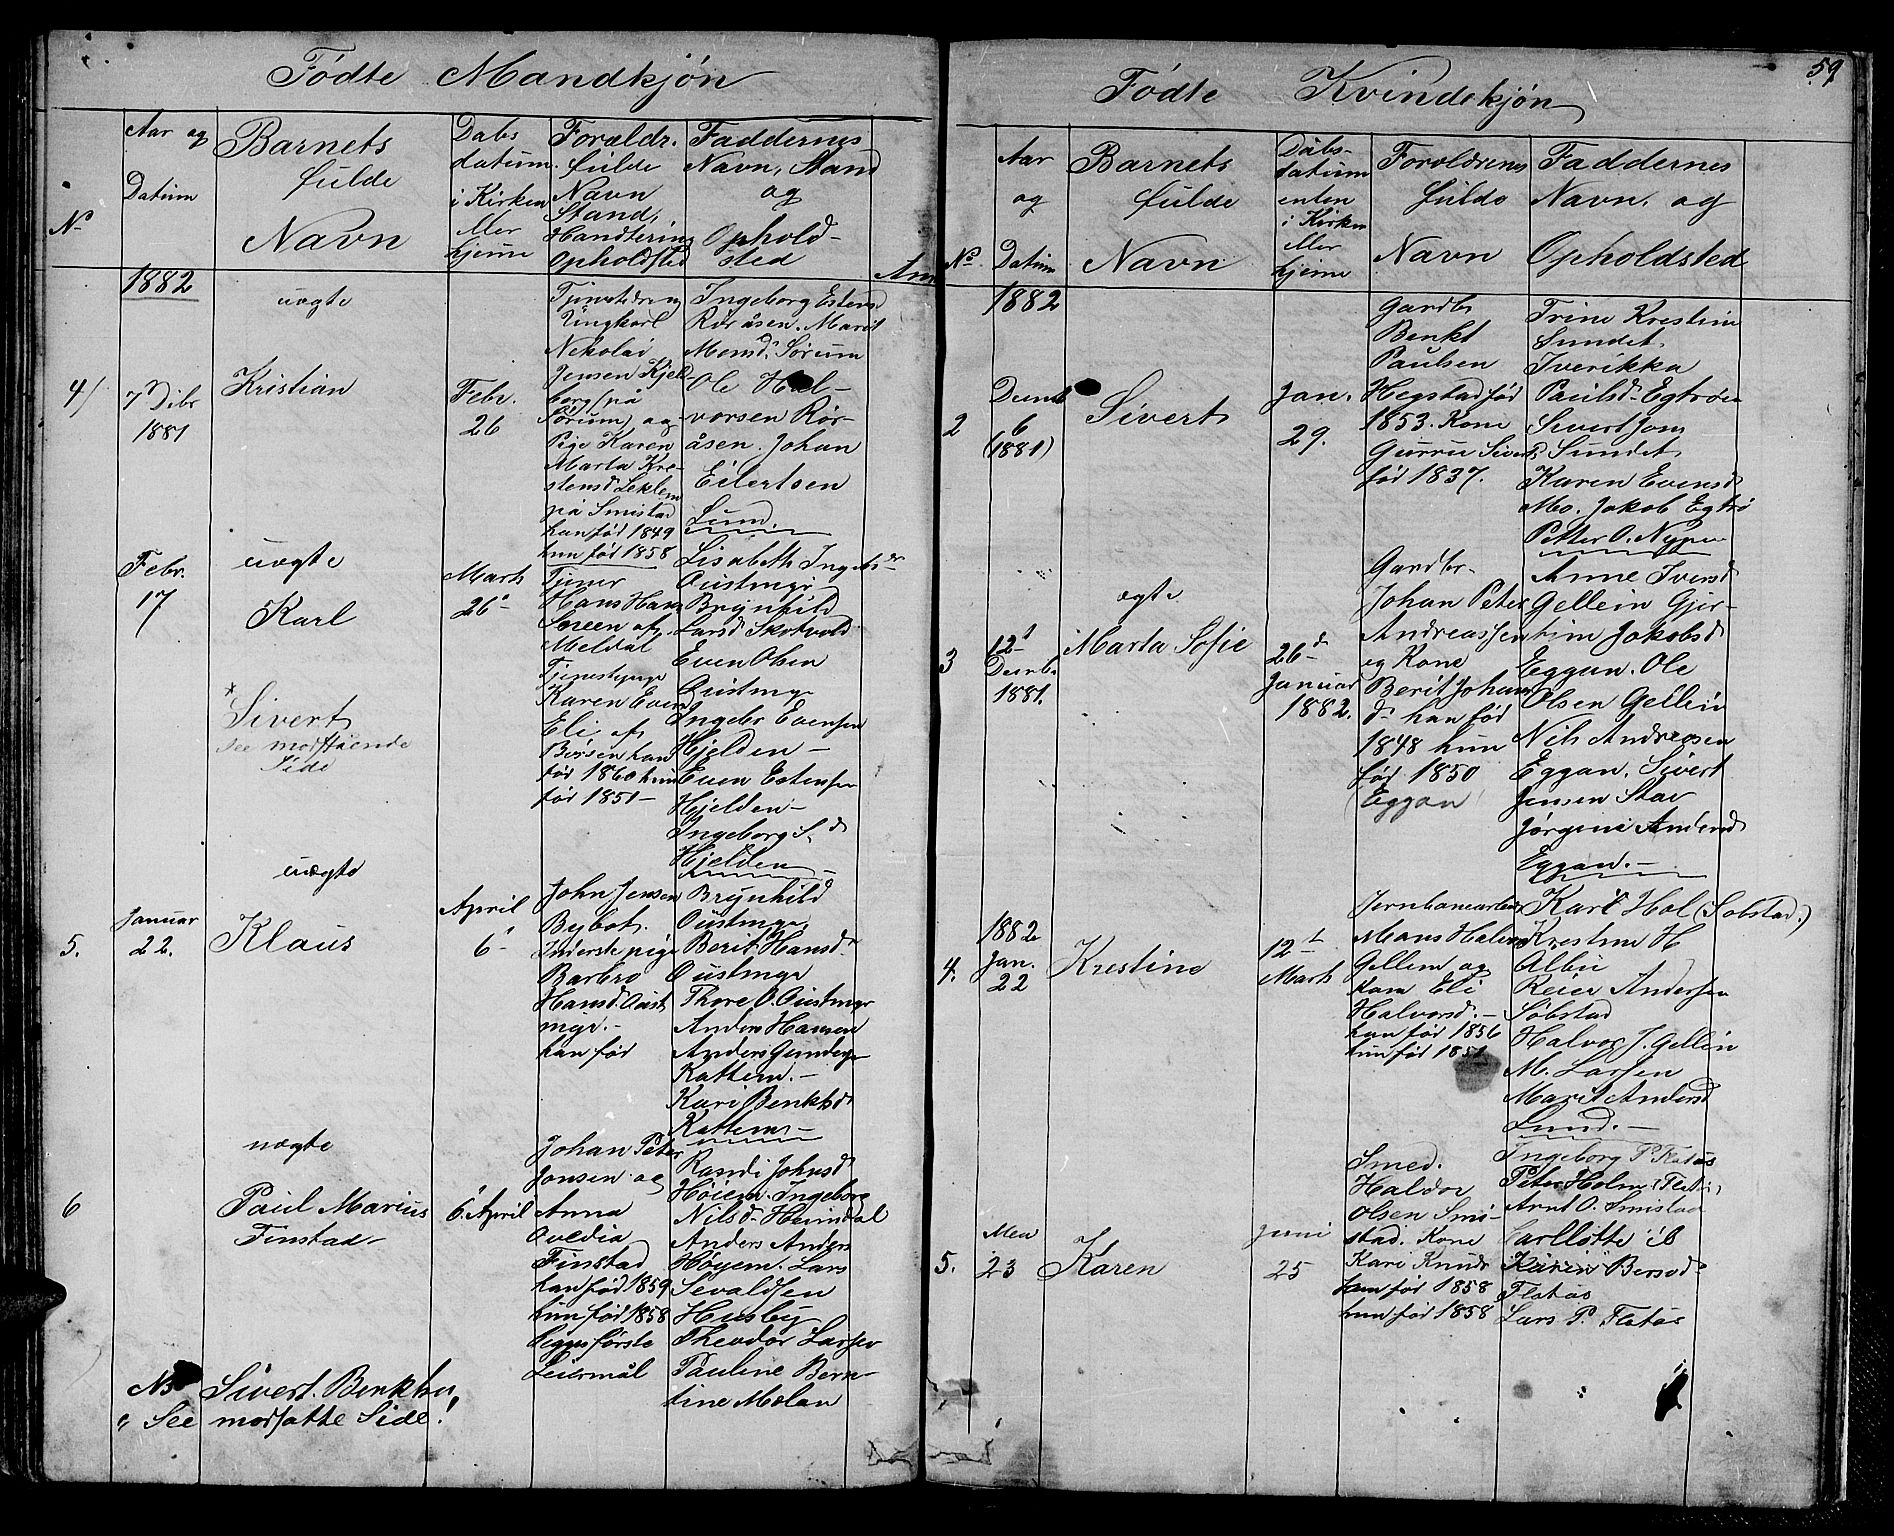 Fødte Mandkjøn
No
Aar og
Datum
Barnets
fulde
Navn
Dabs
datum
i Kirken
eller
hjeme
Forældr.
fulde
Navn
Stand,
Handtering
Opholdsted
Faddernes
Navn, Stand
og
Ophold-
sted
Anm
1882
uægte
4/
7 Dbr
1881
Kristian
Febr.
26
Tjenestedreng
Ungkarl
Nekolai
Jensen Kjeld-
borg på
Sørum, og
Pige Karen
Marta Kre-
stensd. Leklem
på Smistad
han fød 1849
hun fød 1858
Ingeborg Estens
Røråsen. Marit
Monsd. Sørum
Ole Hal-
vorsen Rør-
åsen. Johan
Eilertsen
Lund.
Febr.
17
uægte
Karl
Marts
26
Tjener
Hans Hans
Soreen af
Meldal
Tjenestepige
Karen Evens
Eli af
Børsen han
fød 1860 hun
fød 1851-
Lisabeth Ingebr dr
Oustmyr
Brynhild
Larsd Skotvold
Even Olsen
Oustmyr
Ingebr Evensen
Hjelden-
Even Estensen
Hjelden-
Ingeborg S. d
Hjelden-
* Sivert
See modstående
Side
uægte
5.
Januar
22.
Klaus
April
6
John Jensen
Bybot.
Inderste pige
Barbro
Hansd. Oust
myr.-
han fød
Brynhild
Oustmyr
Berit Hansd.
Oustmyr
Thore O. Oustmyr
Anders Hansen
Anders Gunders
Kattem.-
Kari Benktsd
Kattem-
uægte
6
Paul Marius
Finstad
6. April
Johan Peter
Jonsen og
Anna
Ovedia
Finstad
han fød 1859
hun fød 1858
begges første
Leiermål
Randi Johnsd
Høiem. Ingeborg
Nilsd. Heimdal
Anders Anders
Høyem. Lars
Sevaldsen
Husby
Theodor Larsen
Pauline Bern-
tine Molan
NB Sivert. Benktsen
" See modsatte Side!"
59
Fødte Kvindekjøn
No
Aar
og
Datum
Barnets
fulde
Navn
Dåbs-
datum
enten
i Kirken
eller
hjeme
Forældrenes
fulde
Navn
Faddernes
Navn, og
Opholdsted
1882
2
Decmb
6
(1881)
Sivert
Jan.
29.
Gardbr
Benkt
Paulsen
Hegstad fød
1853. Kone
Gurru Sivert
fød 1837.
Trine Krestine
Sundet.
Iverikka
Paulsd. Egtrøen
Sivert Jons
Sundet
Karen Evensd
Mo. Jakob Egtrø
Petter O. Nypen
ægte
3
12 t
Decmb
1881.
Marta Sofie
26 d
Januar
1882.
Gardbr.
Johan Peter
Andreassen
og Kone
Berit Johan
d. han fød
1848 hun
fød 1850
(Eggan)
Anne Iversd
Gellein Gjer-
tim Jakobsd
Eggan. Ole
Olsen Gellein
Nils Andreasen
Eggan. Sivert
Jensen Stav
Jørgine Andersd
Eggan.-
4.
1882
Jan.
22
Krestine
12 t
Marts
Jernbanearbeider
Mans Halvors
Gellein og
Kone Eli
Halvorsd.-
han fød 1856
hun fød 1851
Kari Hol (Sobstad.)
Krestine H
Albu
Reier Andersen
Søbstad
Halvor J. Gellein
M. Larsen
Marit Andersd
Lund.-
5.
Mai
23
Karen
Juni
25
Smed.
Haldor
Olsen Smi-
stad. Kone
Kari Knudsd
han fød 1858
hun fød 1858
Ingeborg P. Flatås
Peter Holm (Flatås)
Arnt O. Smistad
Carllotte
Bersvd-
Flatås
Lars P. Flatås